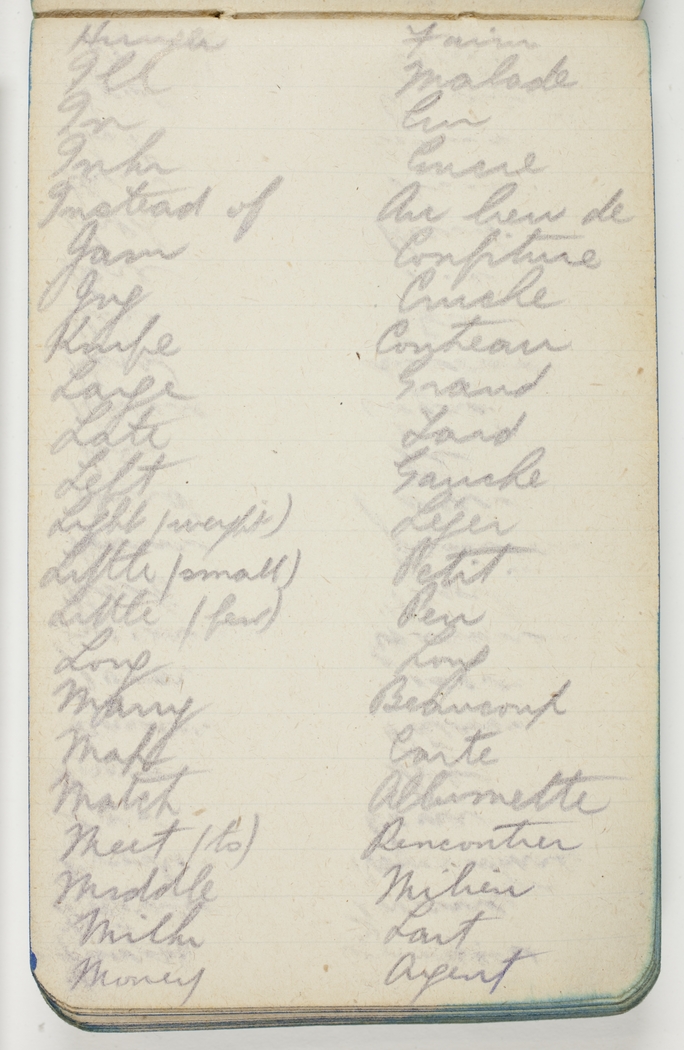 Hunger Faim
Ill Malade
In En
Ink Encre
Instead of Au lieu de
Jam Confiture
Jug Cruche
Knife Couteau
Large Grand
Late Tard
Left Gauche
Light (weight) Léger
Little (small) Petit
Little (few) Peu
Long Long
Many Beaucoup
Map Carte
Match Allumette
Meet (to) Rencontrer
Middle Milieu
Milk Lait
Money Argent